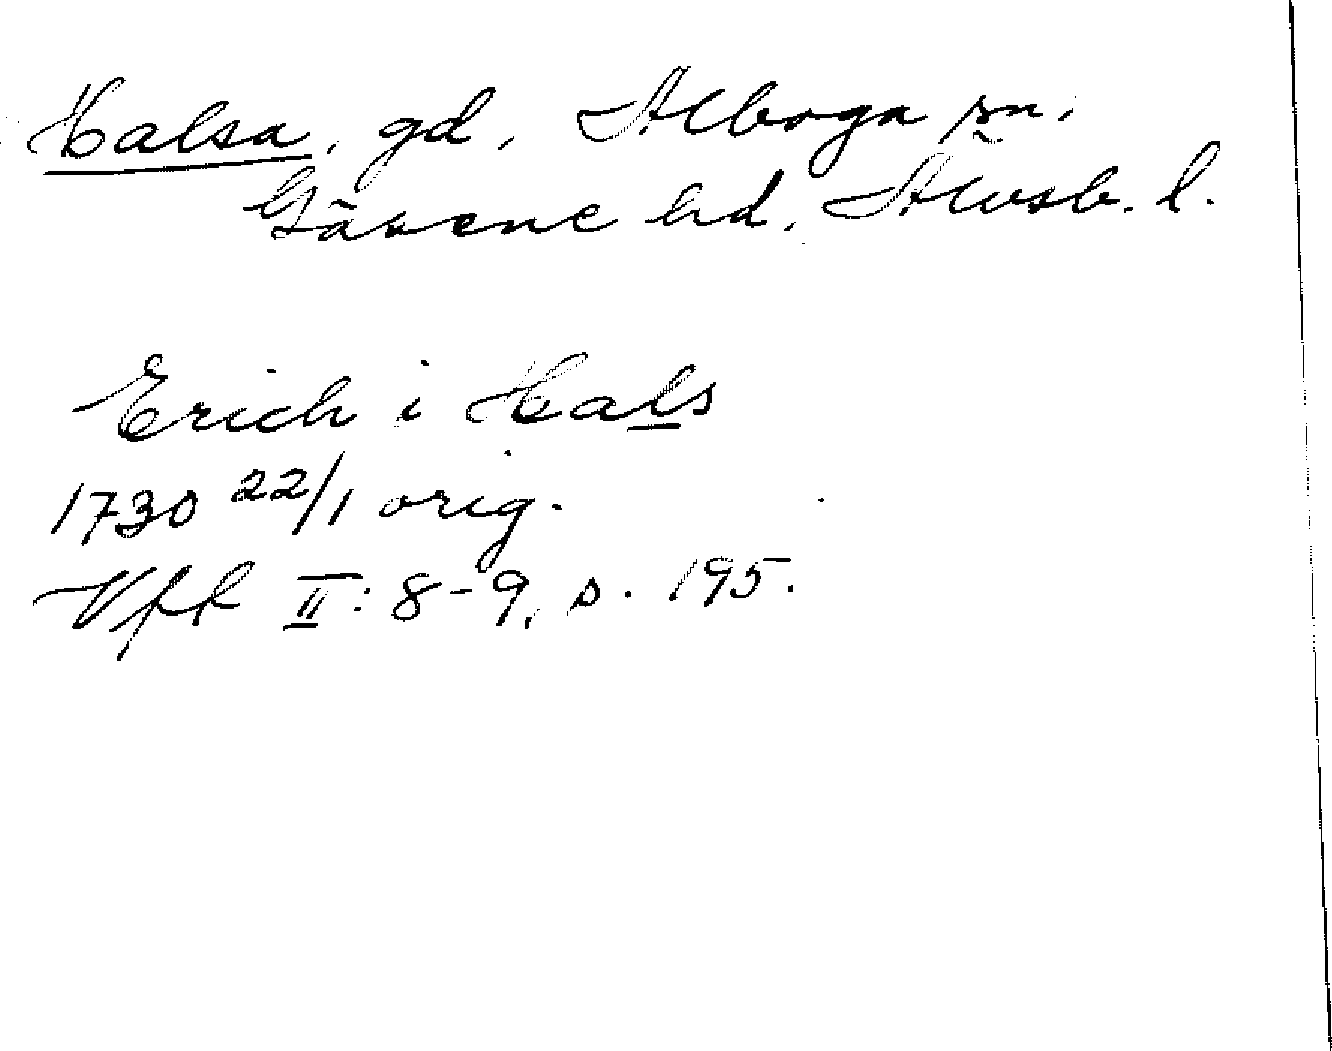 Halsa, gd, Alboga sn.
Gäsene hd, Älvsb. l.
Erich i Hals
1730 22/1 orig.
Vfk II: 8-9, s. 195.